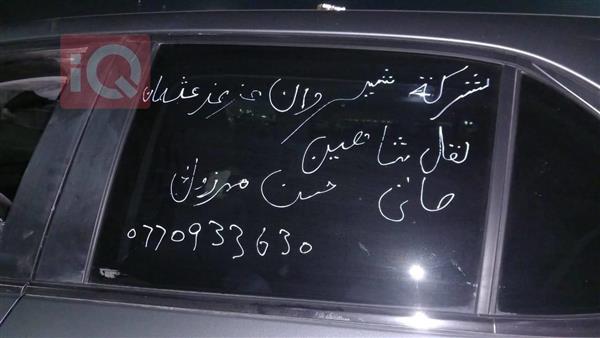 IQ
لشركة شيروان عزيز عثمان
لنقل شاهين
هاني حسن مرزوك
0770933630